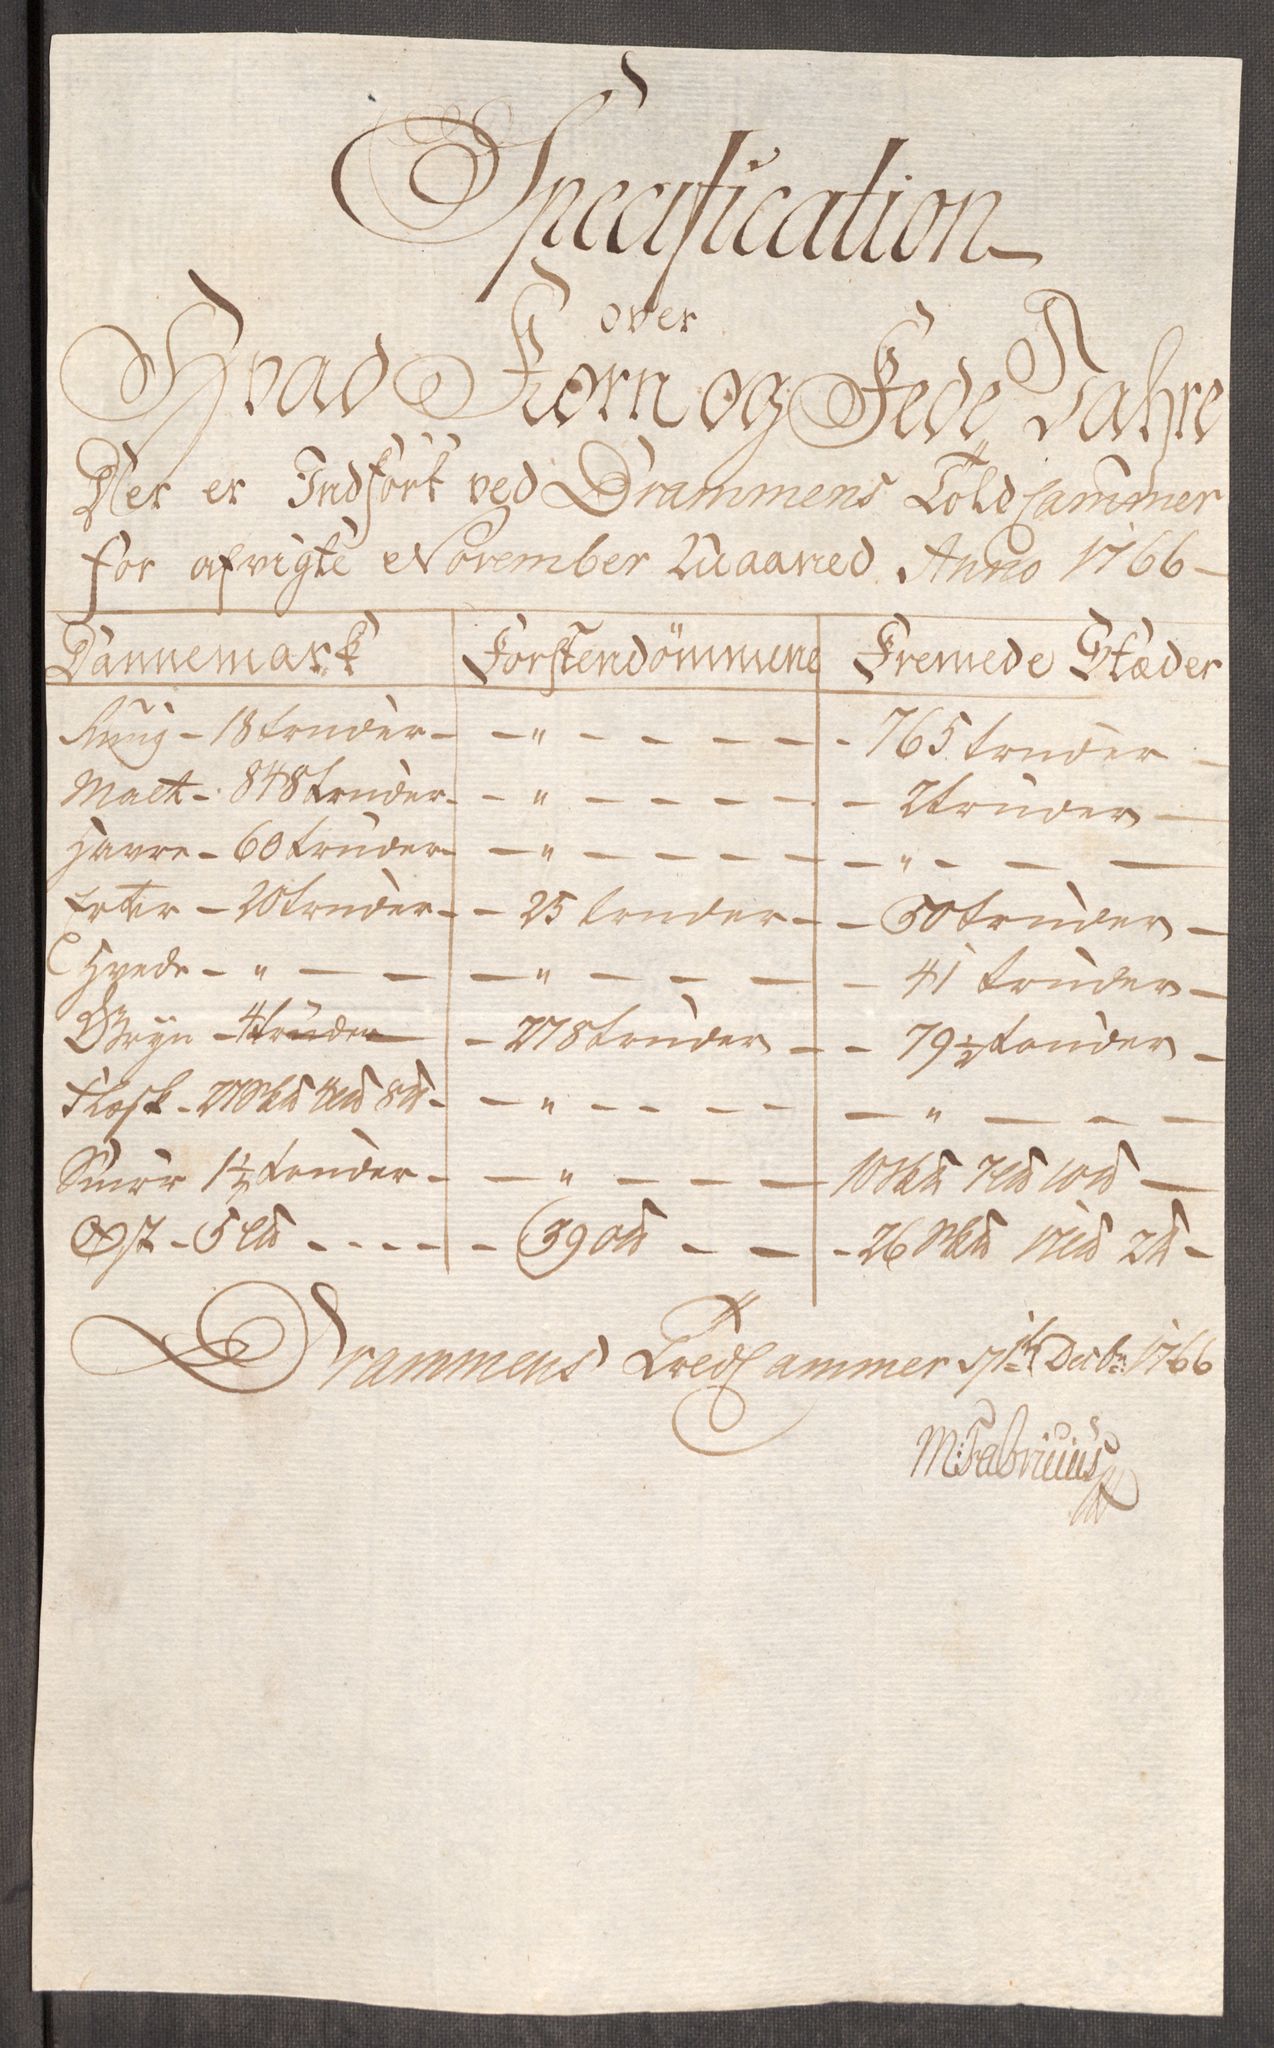 Specification
over
Hvad Korn og Fede Vahre
Der er Indført ved Drammens Told Cammer
for afvigte November Maaned Anno 1766
Dannemark Førstendömmene Fremede Stæder
Rüg - 18 tønder - - " - - - - - 765 tønder -
Malt - 848 tønder - - " - - - - - 2 tønder -
Havre - 60 tønder - - " - - - - - " - - -
Erter - 20 tønder - - 25 tønder - - 50 tønder -
Hvede - " - - - " - - - - 41 tønder -
Gryn - 4 tønder - 278 tønder - - 79 1/2 tønder -
Flesk - 27 Sk℔ 4 L℔ 8 ℔ - - " - - - - " - - -
Smör 1 1/2 tønder - - " - - - 10 Sk℔ 7 L℔ 10 ℔ -
Ost - 5 L℔ - - - - - 390 ℔ - - - 26 Sk℔ 17 L℔ 2 ℔ -
Drammens Cammer Decbr 1766
M: Fabricius